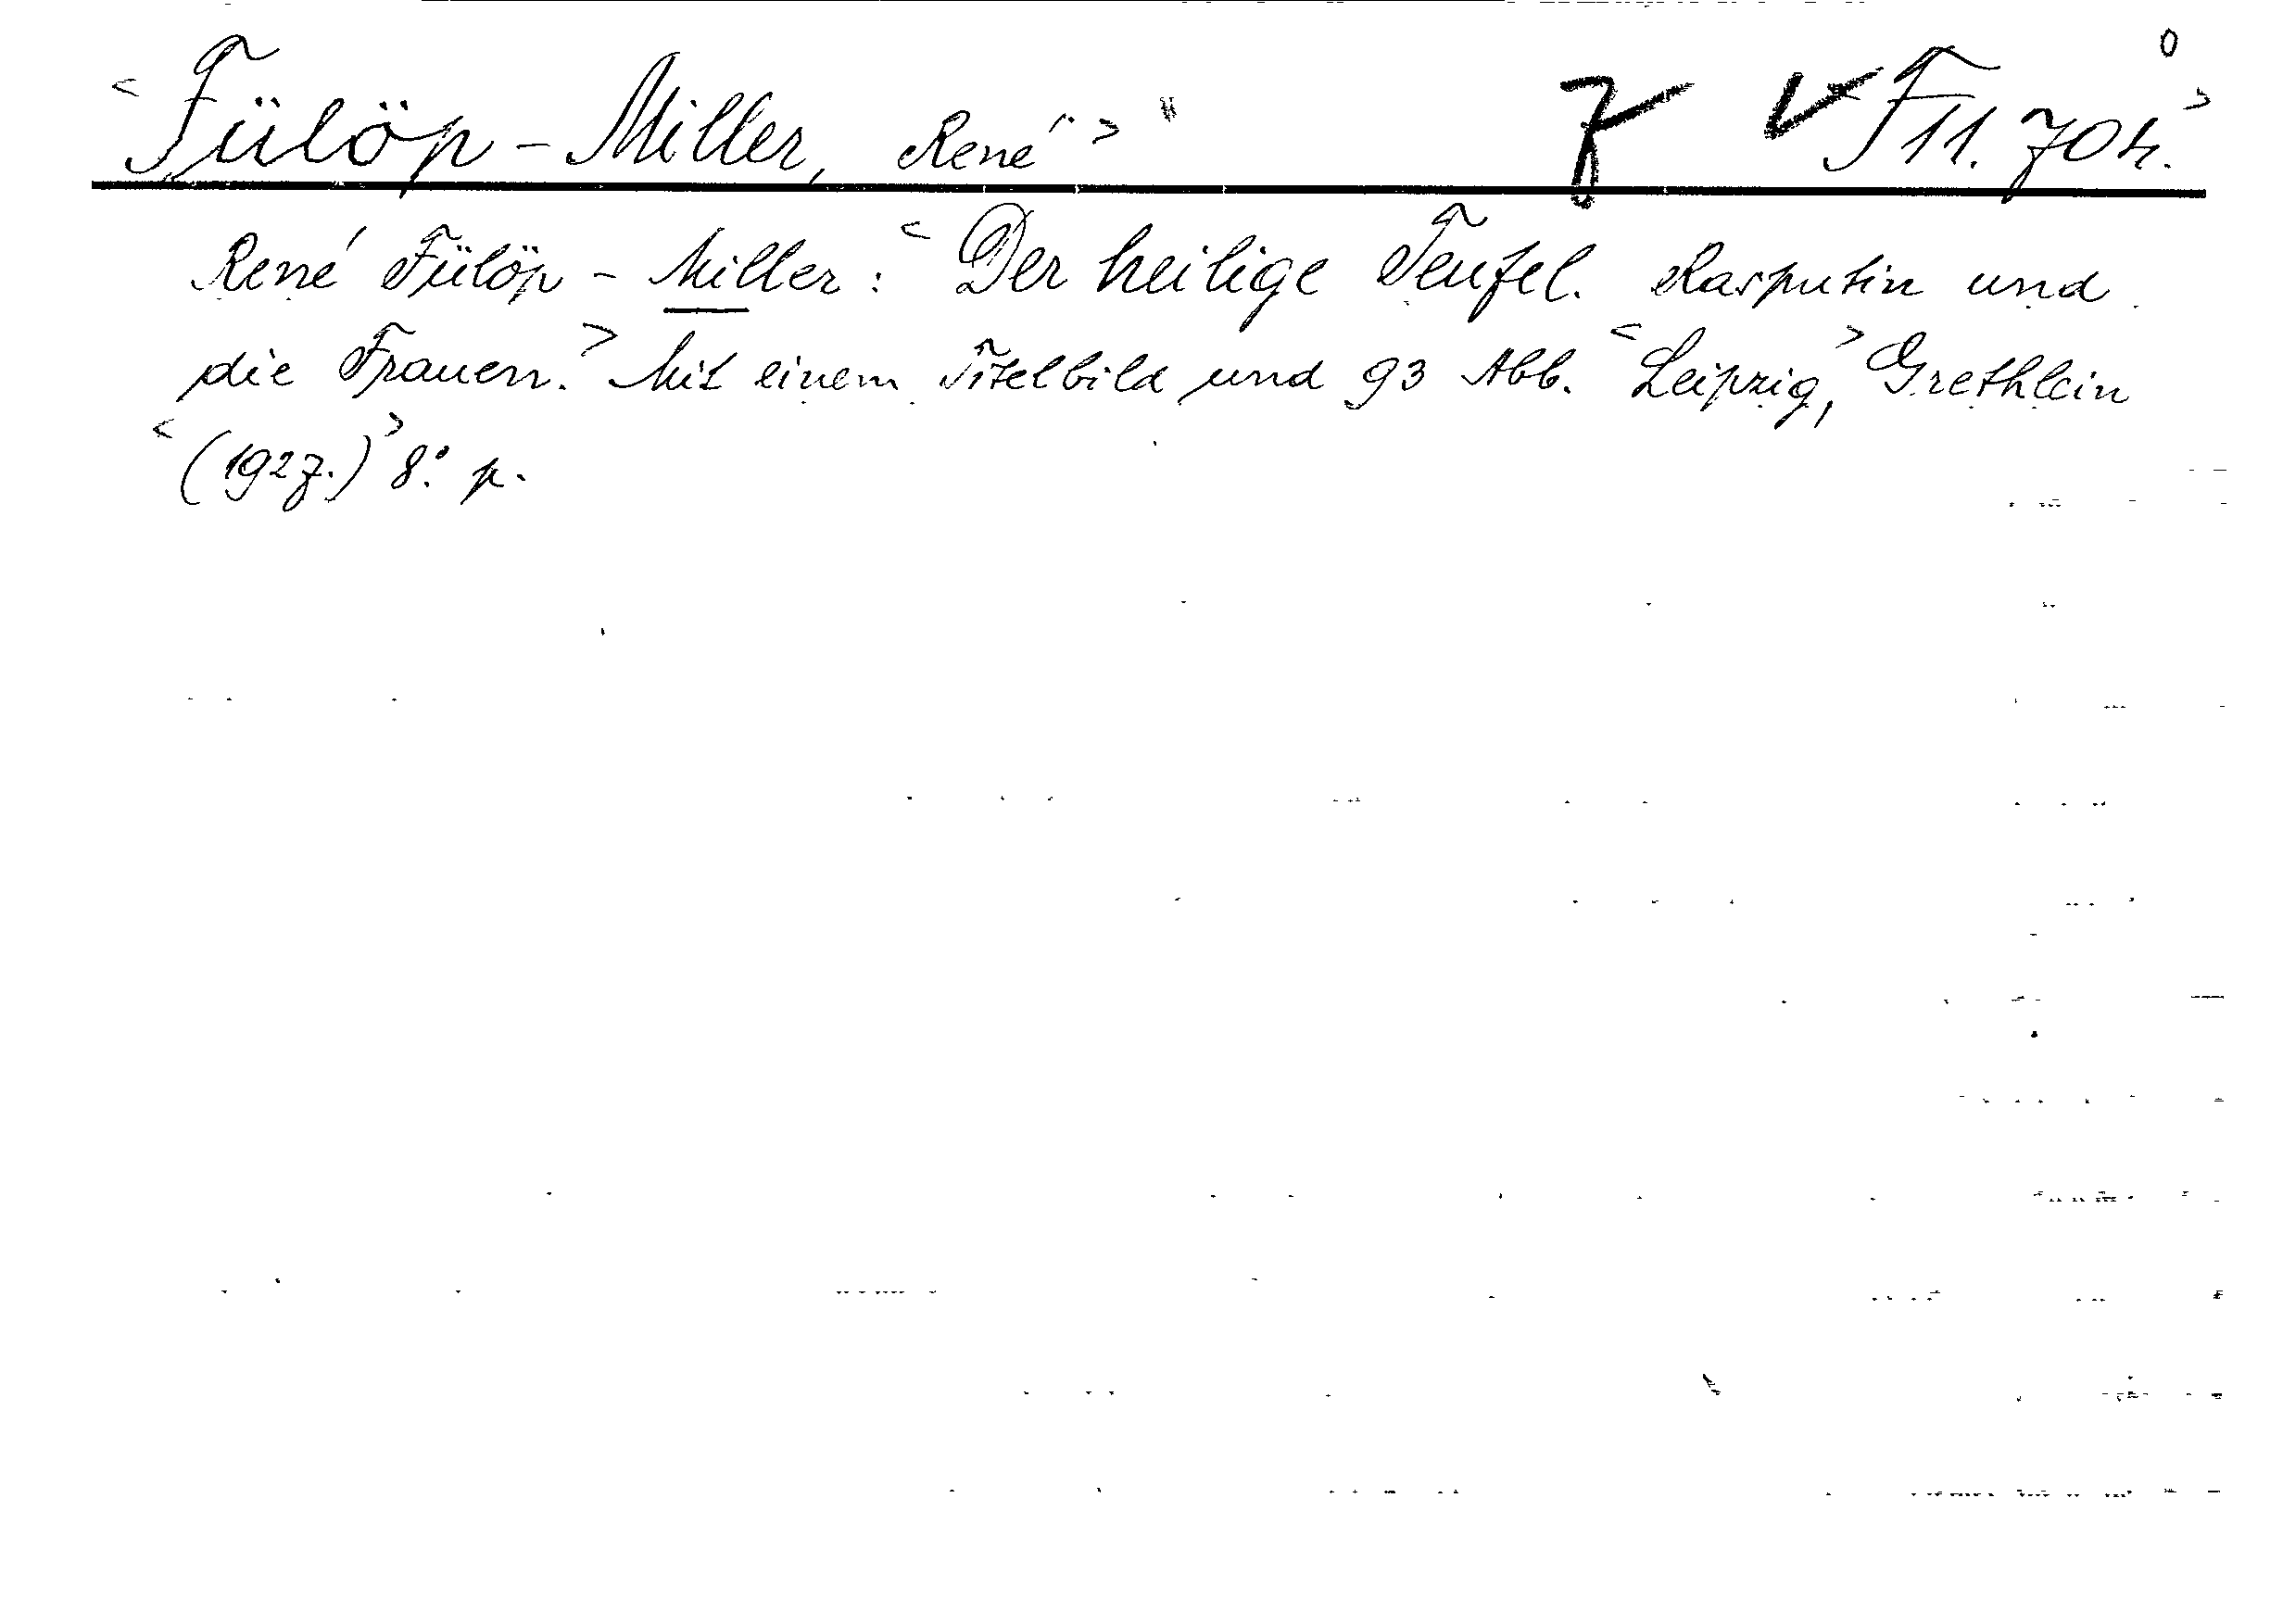 <Fülöp-Miller, René> F 11.704.>
René Fülöp-Miller: <Der heilige Teufel. Rasputin und
die Frauen.> Mit einem Titelbild und 93 Abb. <Leipzig,> Grethlein
<(1927.)> 8° p.